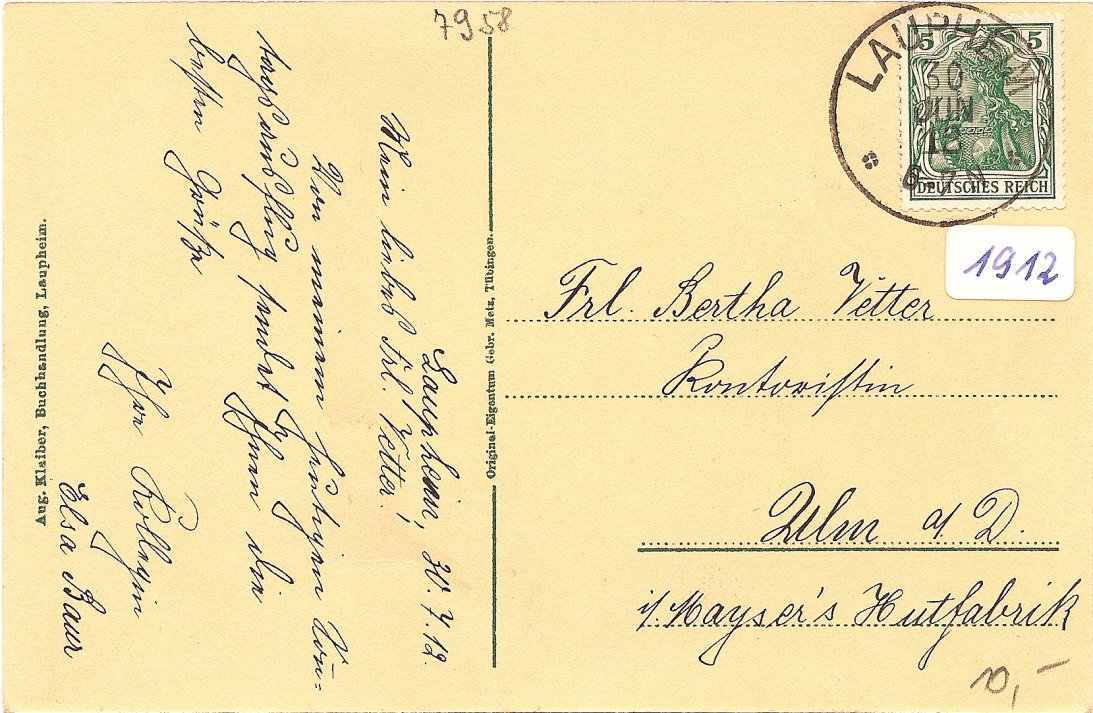 7958
LAUPHEIM
30
JUN
12
6-7 N
5 5
DEUTSCHES REICH
1912
Laupheim, 30. 7. 12.
Mein liebes Frl. Vetter!
Von meinem heutigen Son̄-
tagsausflug sendet Ihnen die
besten Grüße
Ihre Kollegin
Elsa Baur
Aug. Klaiber, Buchhandlung, Laupheim.
Original-Eigentum Gebr. Metz, Tübingen.
Frl. Bertha Vetter
Kontoristin
Ulm a/D.
i/Mayser's Hutfabrik
10,-